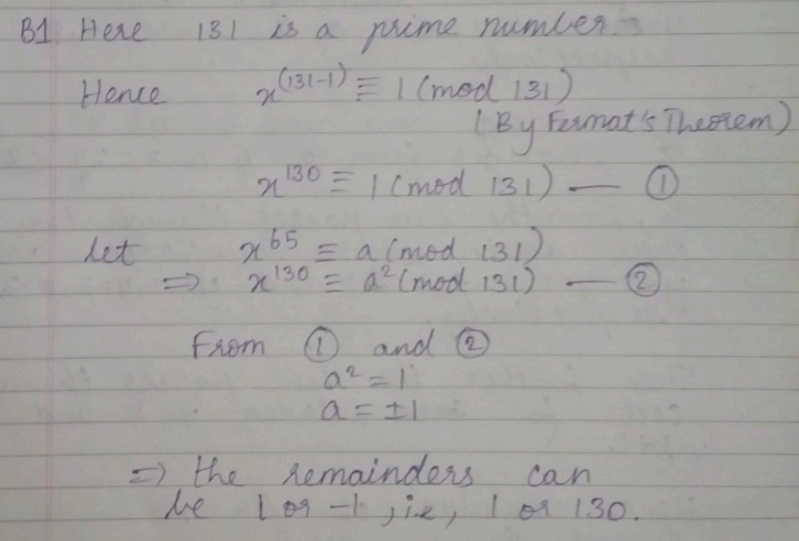 B1. Here 131 is a prime number.
Hence x^(131-1) ≡ 1 (mod 131)
(By Fermat's Theorem)
x^130 ≡ 1 (mod 131) — ①
let x^65 ≡ a (mod 131)
⇒ x^130 ≡ a² (mod 131) — ②
From ① and ②
a² = 1
a = ±1
⇒ the remainders can
be 1 or -1, i.e, 1 or 130.